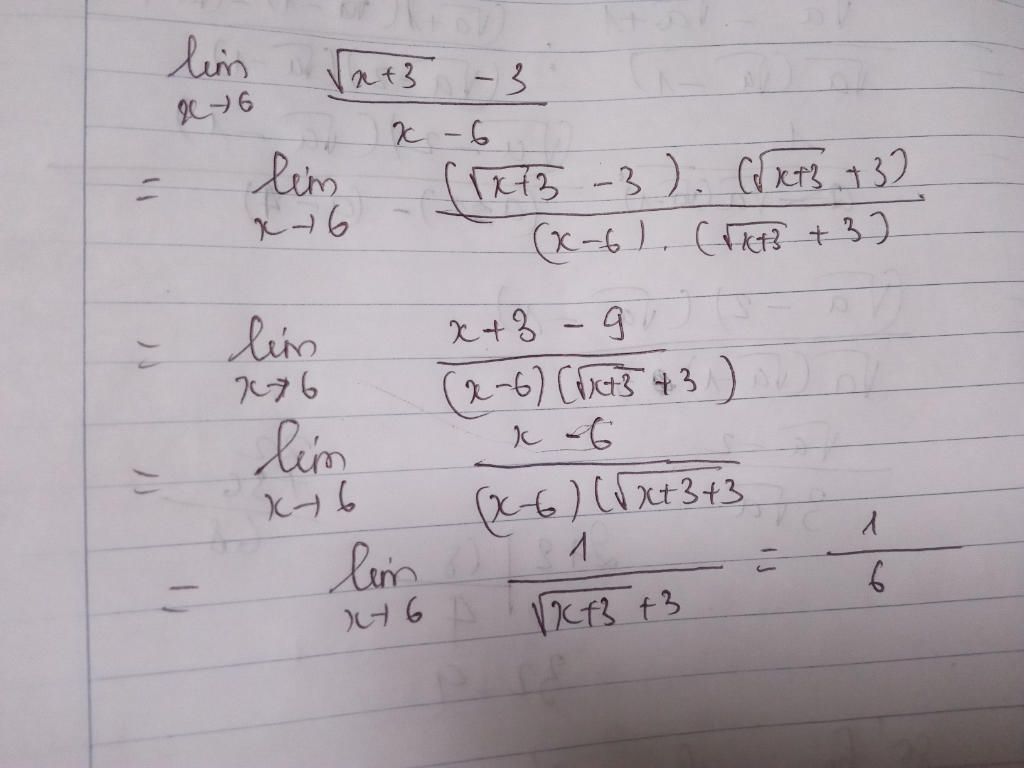 lim x→6 (√(x+3) - 3)/(x - 6)
= lim x→6 ((√(x+3) - 3) . (√(x+3) + 3))/((x-6) . (√(x+3) + 3))
= lim x→6 (x+3 - 9)/((x-6)(√(x+3) + 3))
= lim x→6 (x - 6)/((x-6)(√(x+3+3)
= lim x→6 1/(√(x+3) + 3) = 1/6